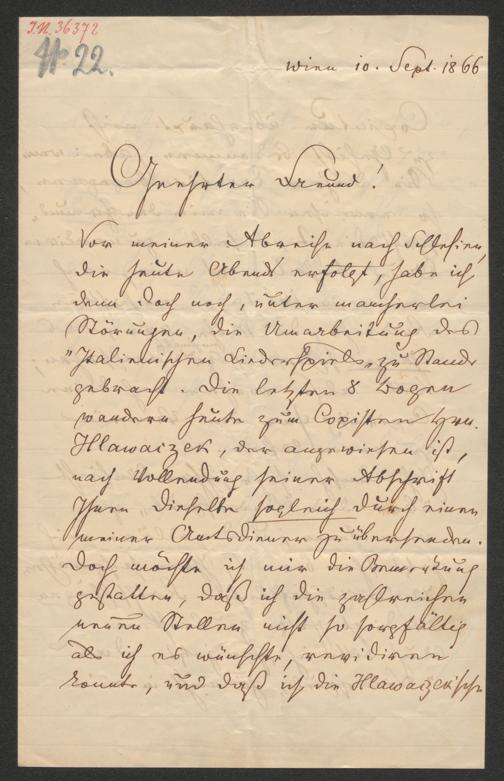 I.N. 36372
No 22.
Wien 10. Sept. 1866
Geehrter Freund!
Vor meiner Abreise nach Schlesien,
die heute Abends erfolgt, habe ich
denn doch noch, unter mancherlei
Störungen, die Umarbeitung des
"Italienischen Liederspiels" zu Stande
gebracht. Die letzten 8 Bogen
wandern heute zum Copisten Hrn.
Hlawaczek, der angewiesen ist,
nach Vollendung seiner Abschrift
Ihnen dieselbe sogleich durch einen
meiner Amtsdiener zu übersenden.
Doch möchte ich mir die Bemerkung
gestatten, daß ich die zahlreichen
neuen Stellen nicht so sorgfältig
als ich es wünschte, revidiren
konnte, und daß ich die Hlawaczek'sche